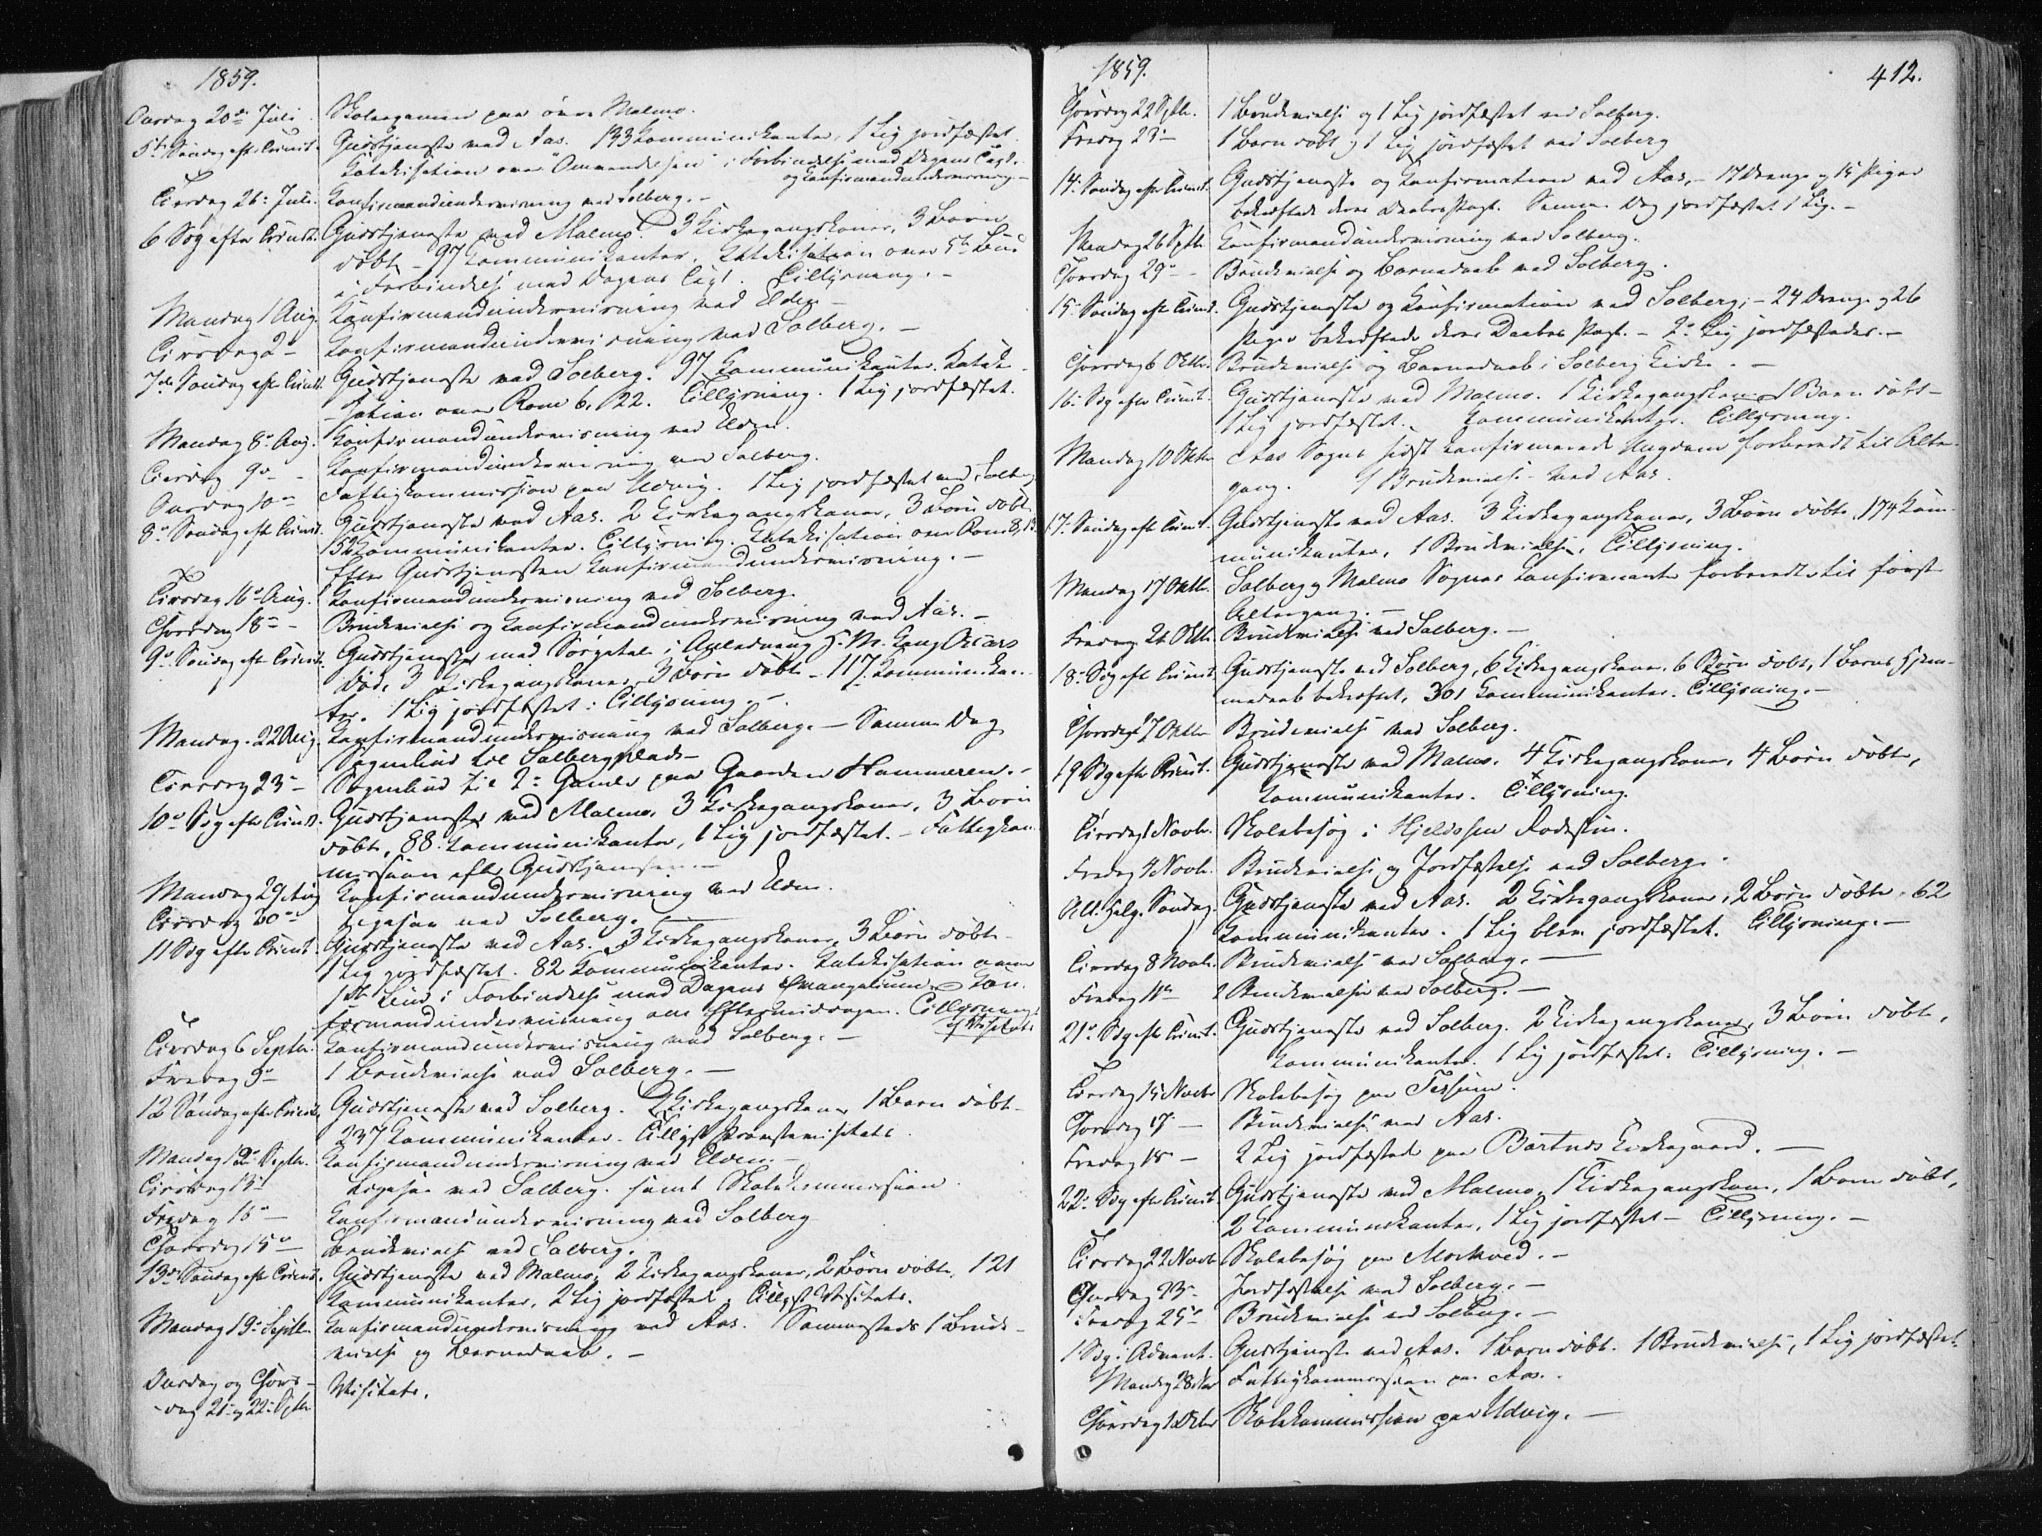 1859.
Onsdag 20de Juli. Skoleexamen paa øvre Malmo.
5te Søndag eft. Trinit. Gudstjeneste ved Aas. 133 Kommunikanter, 1 Lig jordfæstet.
Katekisation over i Forbindelse med Dagens Text.
og Konfirmandundervisning –
Tirsdag 26. Juli. Konfirmandundervisning ved Solberg. –
6 Søg efter Trinit. Gudstjeneste ved Malmo. 3 Kirkegangskoner, 3 Børn
døbte – 97 Kommunikanter. Katekisation over 5te Bud
i Forbindelse med Dagens Text. Tillysning. –
Mandag 1 Aug. Konfirmandundervisning ved Elden –
Tirsdag 2 – Konfirmandundervisning ved Solberg. –
7de Søndag eft Trinit. Gudstjeneste ved Solberg. 97 Kommunikanter. Kateki-
sation over Rom 6, 22. Tillysning. 1 Lig jordfæstet.
Mandag 8de Aug. Konfirmandundervisning ved Elden.
Tirsdag 9de – Konfirmandundervisning ved Solberg.
Onsdag 10de Fattigkommission paa Udvig. 1 Lig jordfæstet ved Solberg
8de Søndag eft Trinit. Gudstjeneste ved Aas. 2 Kirkegangskoner, 3 Børn døbte
52 Kommunikanter. Tillysning. Katekisation over Rom 8,
Efter Gudstjenesten Konfirmandundervisning. –
Tirsdag 16de Aug. Konfirmandundervisning ved Solberg.
Thorsdag 18de – Brudevielse og Konfirmandundervisning ved Aas. –
9de Søndag eft Trinit. Gudstjeneste med Sørgetale i Anledning H. M. Kong Oscars
Død. 3 Kirkegangskoner, 3 Børn døbte – 117 Kommunikan-
ter. 1 Lig jordfæstet. Tillysning. –
Mandag 22 Aug. Konfirmandundervisning ved Solberg. – Samme Dag
Sognebud til Solbergplads –
Tirsdag 23 – Sognebud til 2de Gamle paa Gaarden Hammeren. –
10de Søg eft Trinit. Gudstjeneste ved Malmo, 3 Kirkegangskoner, 3 Børn
døbte, 88 Kommunikanter, 1 Lig jordfæstet. – Fattigkom-
mission efter Gudstjenesten. –
Mandag 29 Aug Konfirmandundervisning ved Elden.
Tirsdag 30de Ligesaa ved Solberg. –
11 Søg efter Trinit. Gudstjeneste ved Aas. 3 Kirkegangskoner, 3 Børn døbte –
1 Lig jordfæstet. 82 Kommunikanter. Katekisation over
1ste Bud i Forbindelse med Dagens Evangelium. – Kon-
firmandundervisning om Eftermiddagen. Tillysning
af Visitats
Tirsdag 6 Septbr. Konfirmandundervisning ved Solberg. –
Fredag 9de – 1 Brudevielse ved Solberg. –
12 Søndag efter Trinit. Gudstjeneste ved Solberg. 2 Kirkegangskoner 1 Barn døbt –
237 Kommunikanter. Tillyst Provstevisitats.
Mandag 12de Septbr. Konfirmandundervisning ved Elden. –
Tirsdag 13de Ligesaa ved Solberg. samt Skolekommission
Fredag 16de – Konfirmandundervisning ved Solberg
Thorsdag 15de – Brudevielse ved Solberg.
13de Søndag eft Trinit. Gudstjeneste ved Malmo, 2 Kirkegangskoner, 2 Børn døbte, 121
Kommunikanter, 2 Lig jordfæstet. Tillyst Visitats.
Mandag 19de Septbr. Konfirmandundervisning ved Aas. Sammesteds 1 Brude-
vielse og Barnedaab. –
Onsdag og Thors- Visitats.
dag 21 og 22 Septbr
1859. 412.
Thorsdag 22 Septbr. 1 Brudevielse og 1 Lig jordfæstet ved Solberg.
Fredag 23de – 1 Barn døbt og 1 Lig jordfæstet ved Solberg
14de Søndag efter Trinit. Gudstjeneste og Konfirmation ved Aas, – 17 Drenge og 15 Piger
bekræftede deres Daabspagt. Samme Dag jordfæstet 1 Lig. –
Mandag 26 Septbr. Konfirmandundervisning ved Solberg.
Thorsdag 29de – Brudevielse og Barnedaab ved Solberg.
15de Søndag eft Trinit. Gudstjeneste og Konfirmation ved Solberg, – 24 Drenge og 26
Piger bekræftede deres Daabes Pagt. – 2de Lig jordfæstedes. –
Thorsdag 6 Oktbr. Brudevielse og Barnedaab i Solberg Kirke. –
16de Søg efter Trinit. Gudstjeneste ved Malmo. 1 Kirkegangskone 1 Barn døbt –
1 Lig jordfæstet. Kommunikanter. Tillysning.
Mandag 10 Oktbr Aas Sogns sidst konfirmerede Ungdom forberedt til Alter-
gang. 1 Brudevielse ved Aas.
17de Søndag eft Trinit. Gudstjeneste ved Aas. 3 Kirkegangskoner, 3 Børn døbte, 174 Kom-
munikanter, 1 Brudevielse. Tillysning.
Mandag 17 Oktbr. Solberg og Malmo Sognes Konfirmanter forberedt til første
Altergang. –
Fredag 21 Oktbr. Brudevielse ved Solberg. –
18de Søg eft Trinit. Gudstjeneste ved Solberg, 6 Kirkegangskoner, 6 Børn døbt, 1 Barns Hjem-
medaab bekræftet, 301 Kommunikanter. Tillysning. –
Thorsdag 27 Oktbr Brudevielse ved Solberg.
19 Søg efter Trinit. Gudstjeneste ved Malmo. 4 Kirkegangskoner, 4 Børn døbte,
Kommunikanter. Tillysning.
Tirsdag 1 Novbr. Skolebesøg i Hjeldssen Rodestue.
Fredag 4 Novbr. Brudevielse og Jordfæstelse ved Solberg. –
All. Helg. Søndag. Gudstjeneste ved Aas. 2 Kirkegangskoner, 2 Børn døbte, 62
Kommunikanter. 1 Lig blev jordfæstet. Tillysning. –
Tirsdag 8 Novbr. Brudevielse ved Solberg. –
Fredag 11te 2 Brudevielser ved Solberg. –
21de Søg eft Trinit. Gudstjeneste ved Solberg. 2 Kirkegangskoner, 3 Børn døbte,
Kommunikanter. 1 Lig jordfæstet. Tillysning. –
Tirsdag 15 Novbr Skolebesøg paa
Thorsdag 17 – Brudevielse ved Aas.
Fredag 18 – 2 Lig jordfæstede paa Bartnes Kirkegaard. –
22de Søg eft Trinit Gudstjeneste ved Malmo, 1 Kirkegangskone, 1 Barn døbt,
2 Kommunikanter, 1 Lig jordfæstet – Tillysning. –
Tirsdag 22 Novbr Skolebesøg paa Morkved. –
Onsdag 23de Jordfæstelse ved Solberg. –
Fredag 25de Brudevielse ved Solberg. –
1 Søg i Advent. Gudstjeneste ved Aas. 1 Barn døbt. 1 Brudevielse, 1 Lig jordfæstet.
Mandag 28 Nov Fattigkommission paa Aas. –
Thorsdag 1 Decbr Skolekommission paa Udvig. –